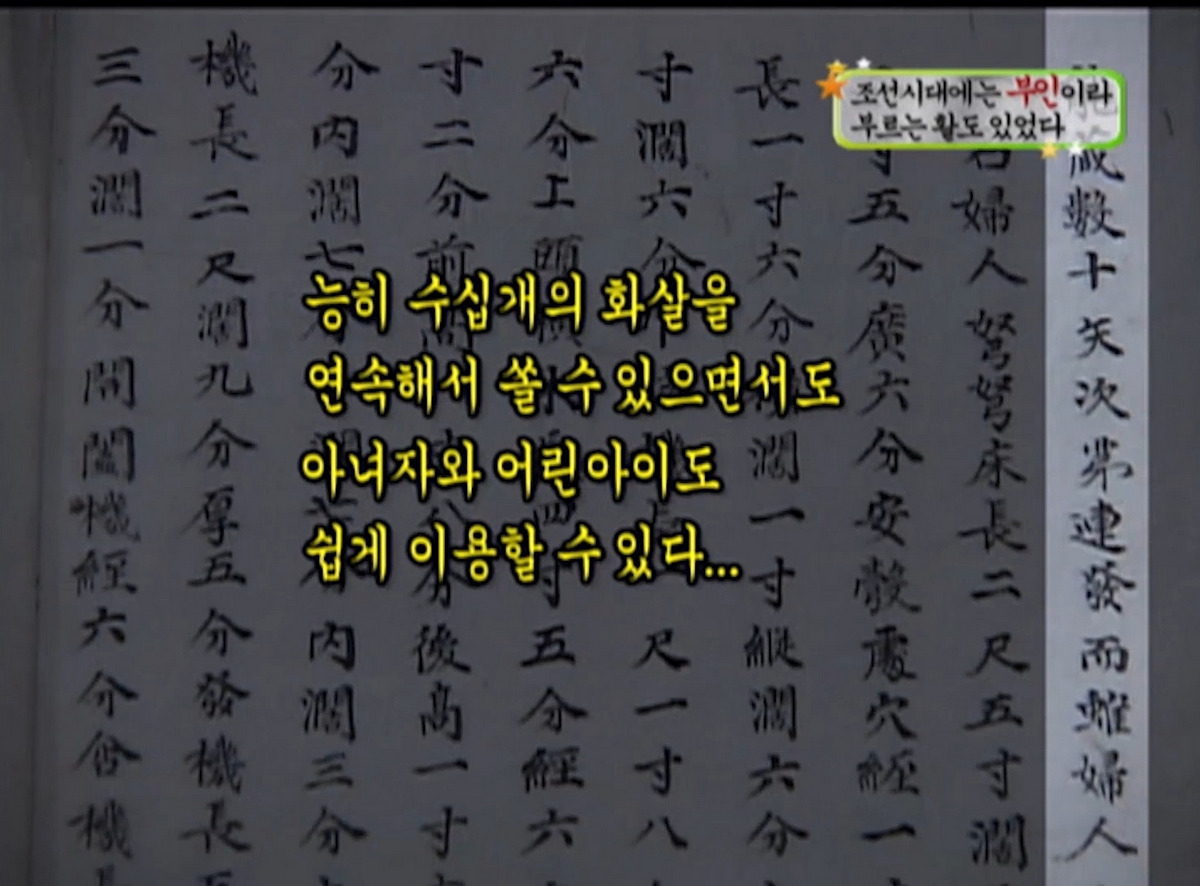 조선시대에는 부인이라
부르는 활도 있었다
능히 수십개의 화살을
연속해서 쏠 수 있으면서도
아녀자와 어린아이도
쉽게 이용할 수 있다...
數十矢次第連發而雖婦人
婦人弩弩床長二尺五寸濶
五分廣六分安彀處穴經一
長一寸六分濶一寸縱濶六分
寸濶六分尺一寸八
六分上頭四寸五分經六
寸二分前高八分後高一寸
分內濶七內濶三分
機長二尺濶九分厚五分發機長
三分濶一分開闔機經六分含機